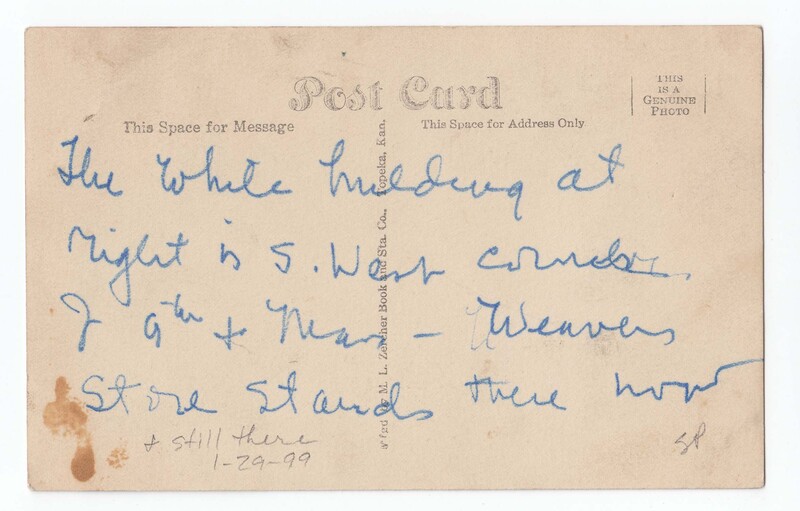 Post Card
THIS
IS A
GENUINE
PHOTO
This Space for Message
This Space for Address Only
The White building at
right is S. West corner
of 9th & Mass - Weavers
Store stands there now
& still there
1-29-99
SP
by M. L. Zercher Book and Sta. Co., Topeka, Kan.